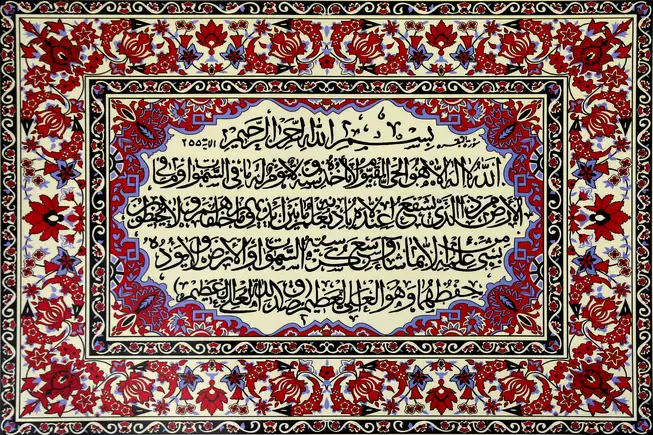 سورة البقرة بسم الله الرحمن الرحيم الآية ٢٥٥
الله لا إله إلا هو الحي القيوم لا تأخذه سنة ولا نوم له ما في السموات وما في
الأرض من ذا الذي يشفع عنده إلا بإذنه يعلم ما بين أيديهم وما خلفهم ولا يحيطون
بشيء من علمه إلا بما شاء وسع كرسيه السموات والأرض ولا يؤده
حفظهما وهو العلي العظيم صدق الله العلي العظيم